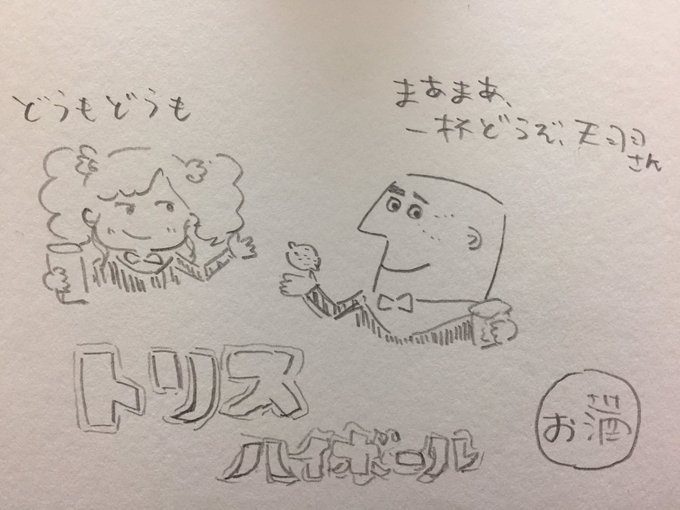 どうもどうも
まあまあ、
一杯どうぞ、天羽さん
トリス
ハイボール
お酒
さけ